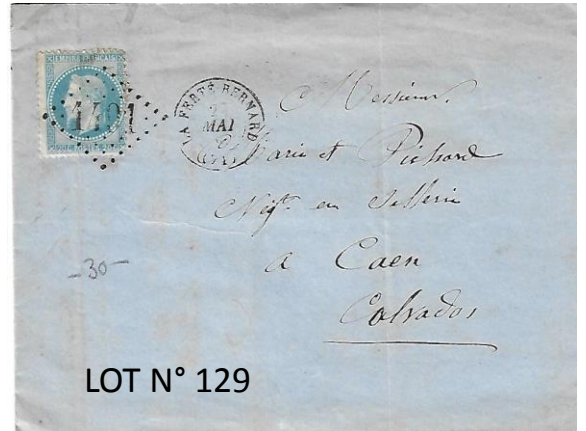 EMPIRE FRANÇAIS
LA FERTÉ BERNARD
MAI
Messieurs
Marie et Pichard
Négts en Sellerie
à Caen
Calvados
-30-
LOT N° 129